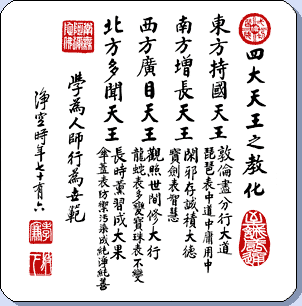 四大天王之教化
東方持國天王
敦倫盡分行大道
琵琶表中道中庸用中
南方增長天王
閑邪存誠積大德
寶劍表智慧
西方廣目天王
觀照世間修大行
龍蛇表多變寶珠表不變
北方多聞天王
長時薰習成大果
傘蓋表防禦污染成純淨純善
學為人師行為世範
淨空時年七十有六
南無阿彌陀佛